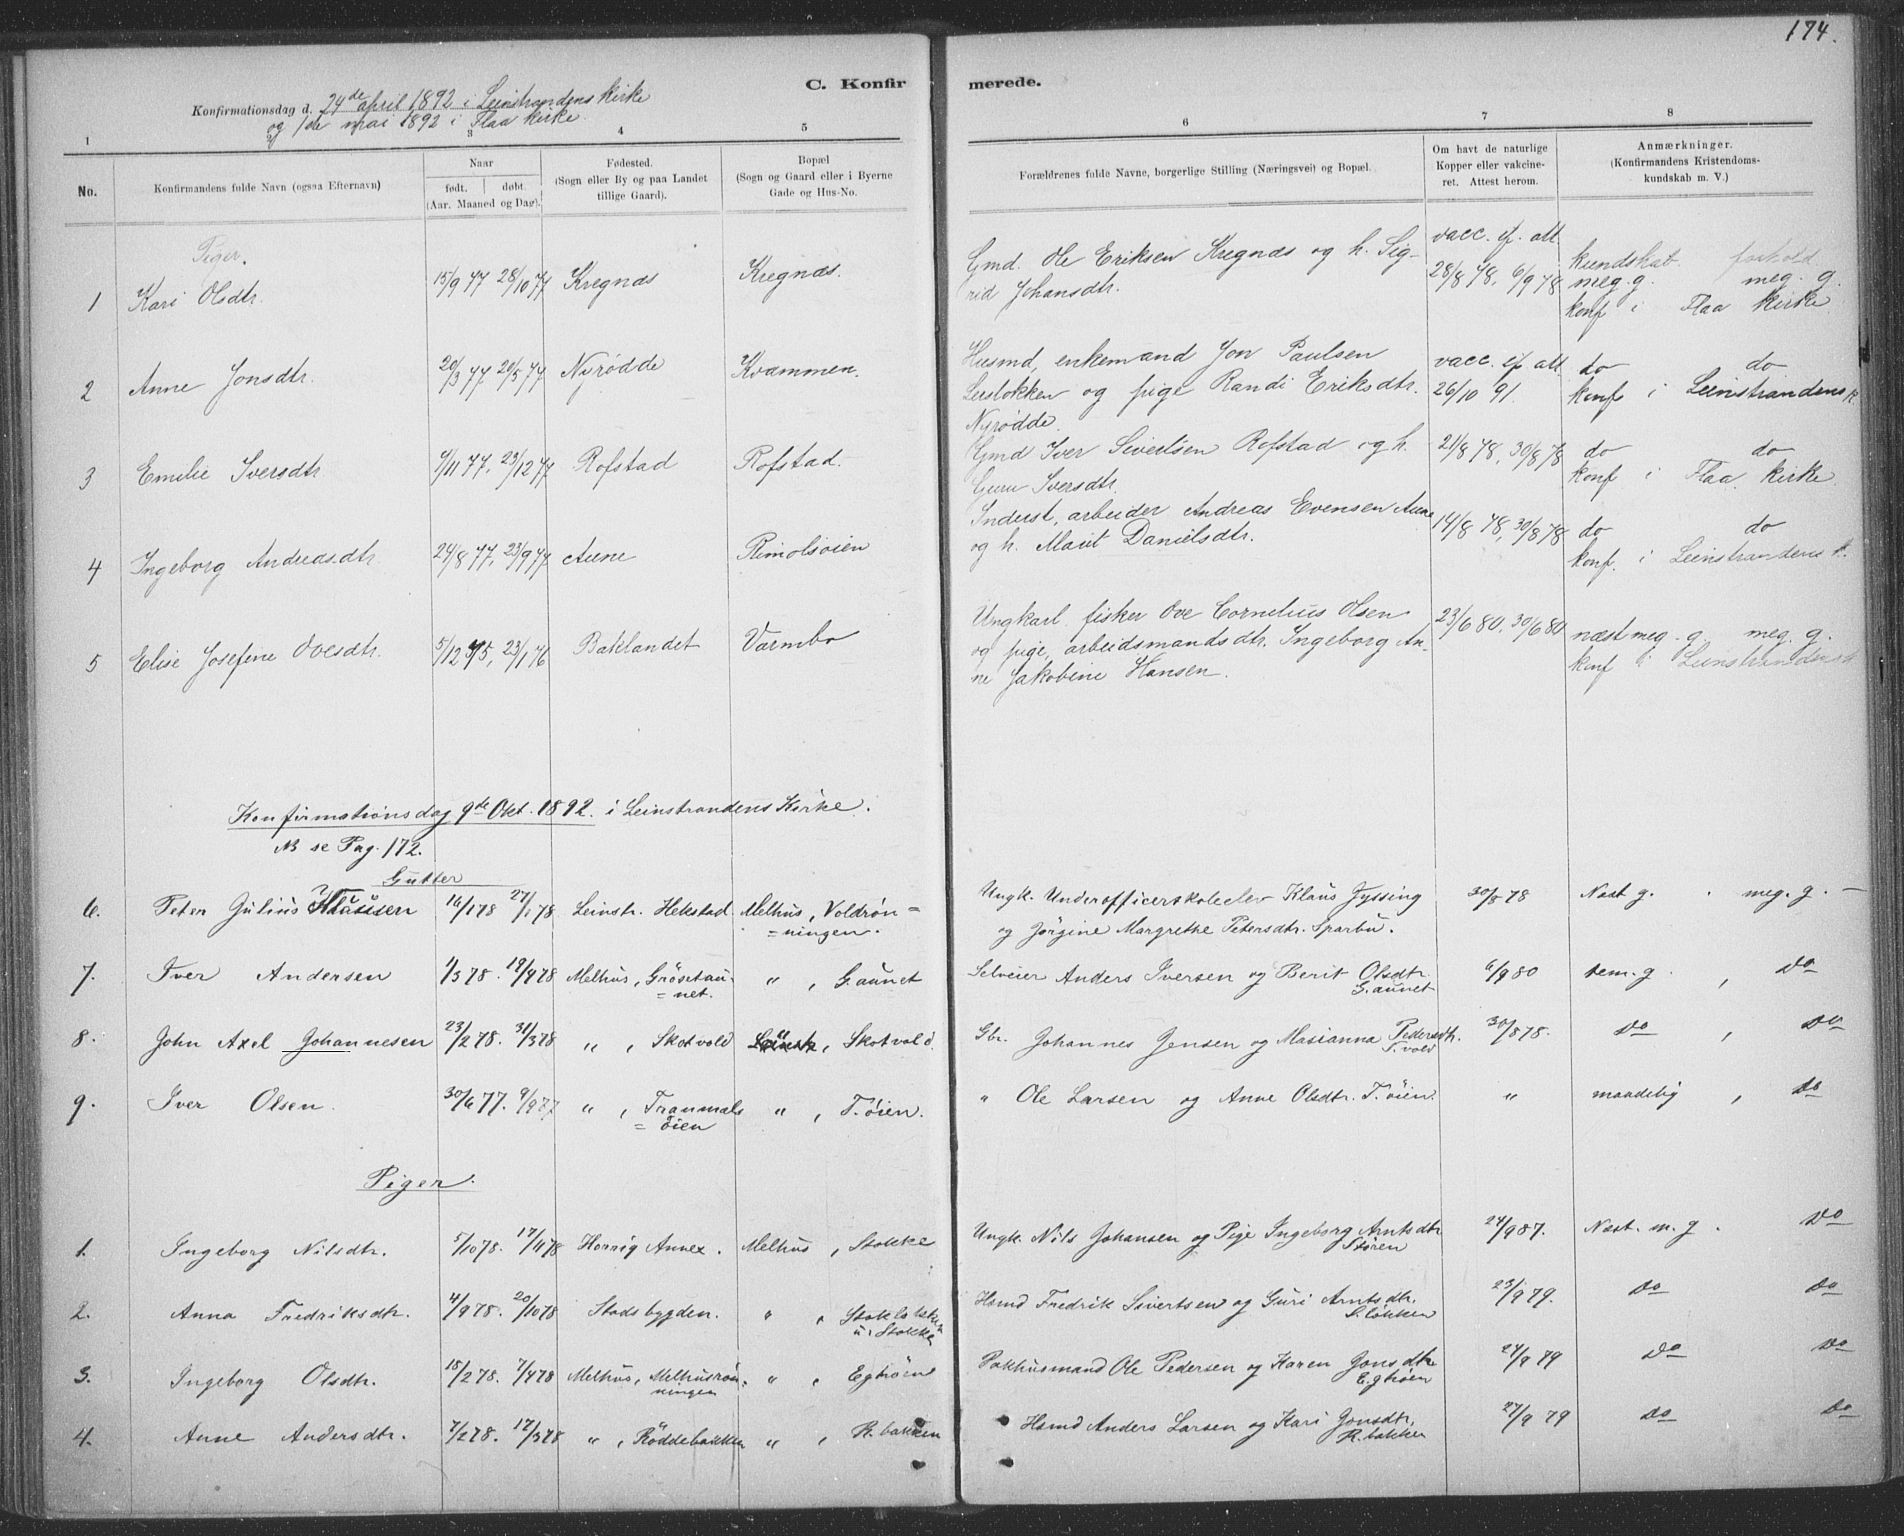 174.
C. Konfir
merede.
Konfirmationsdag d. 24de april 1892 i Leinstrandens kirke
og 1de mai 1892 i Flaa kirke.
1 3 4 5 6 7 8
No.
Konfirmandens fulde Navn (ogsaa Efternavn)
Naar
født. | døbt.
(Aar. Maaned og Dag).
Fødested.
(Sogn eller By og paa Landet
tillige Gaard).
Bopæl
(Sogn og Gaard eller i Byerne
Gade og Hus-No.
Forældrenes fulde Navne, borgerlige Stilling (Næringsvei) og Bopæl.
Om havt de naturlige
Kopper eller vakcine-
ret. Attest herom.
Anmærkninger.
(Konfirmandens Kristendoms-
kundskab m. V.)
Piger.
1 Kari Olsdtr. 15/9 77 28/10 77 Kregnæs Kregnæs.
Gmd. Ole Eriksen Kregnæs og h. Sig-
rid Johansdtr.
vacc. ef. att.
28/8 78, 6/9 78
kundskab forhold
meg. g. meg. g.
konf i Flaa kirke
2 Anne Jonsdtr. 20/3 77, 20/5 77 Nyrødde Kvammen.
Husmd, enkemand Jon Paulsen
Lersløkken og pige Randi Eriksdtr.
Nyrødde.
vacc. ef att.
26/10 91.
do do
konf i Leinstrandens k
3 Emilie Iversdtr 9/11 77, 23/12 77 Rofstad Rofstad.
Gmd Iver Sivertsen Rofstad og h.
Guru Iversdtr.
21/8 78, 30/8 78
do do
konf i Flaa kirke
4 Ingeborg Andreasdtr. 24/8 77, 23/9 77 Aune Rimolsøien
Inderst, arbeider Andreas Evensen Aune
og h. Marit Danielsdtr.
14/8 78, 30/8 78
do do
konf. i Leinstrandens k.
5 Elise Josefine Ovesdtr. 5/12 75, 23/1 76 Baklandet Varmbo
Ungkarl fisker Ove Cornelius Olsen
og pige, arbeidsmandsdtr. Ingeborg An-
ne Jakobine Hansen.
23/6 80, 30/6 80
næst meg. g. meg. g.
konf i Leinstrandens k
Konfirmationsdag 9de Okt. 1892. i Leinstrandens Kirke.
NB se Pag. 172.
Gutter
6. Peter Julius 16/1 78 27/1 78 Leinstr. Hekstad. Melhus, Voldrøn=
=ningen.
Ungk. Underofficerskoleelev Klaus Jyssing
og Jørgine Margrethe Petersdtr. Sparbu.
30/8 78 Næst g. meg. g. —
7. Iver Andersen 1/3 78. 19/4 78 Melhus, Grøsetau-
=net.
" , G.aunet
Selveier Anders Iversen og Berit Olsdtr.
G.aunet
6/9 80 tem. g. , Do
8. John Axel Johannesen 23/2 78. 31/3 78 " , Skotvold , Skotvold.
Gbr. Johannes Jensen og Marianna Pedersdtr.
30/8 78. Do , Do
9. Iver Olsen. 30/6 77. 9/9 77 " , Tranmæls
=øien
" , T.øien.
" Ole Larsen og Anne Olsdtr. T.øien. " maadelig , Do
Piger.
1. Ingeborg Nilsdtr. 5/10 78. 17/11 78 Horrig Annex. Melhus, Stokke
Ungk. Nils Johansen og Pige Ingeborg Arntsdtr
Støren
24/9 87. Næst. m. g. Do
2. Anna Fredriksdtr. 4/9 78. 20/10 78 Stadsbygden. " , Stokløkken
u. Stokke
Hsmd Fredrik Sivertsen og Guri Arntsdtr.
S.løkken
23/9 79. Do Do
3. Ingeborg Olsdtr. 15/2 78. 7/4 78 Melhus, Melhusrøn-
ningen
" , Eghøen
Pakhusmand Ole Pedersen og Karen Jonsdtr
Eghøen
24/9 79 Do Do
4. Anne Andersdtr. 7/2 78. 17/3 78 " , Røddebakken " , R.bakken
Hsmd Anders Larsen og Kari Jonsdtr,
R.bakken
27/9 79 Do Do